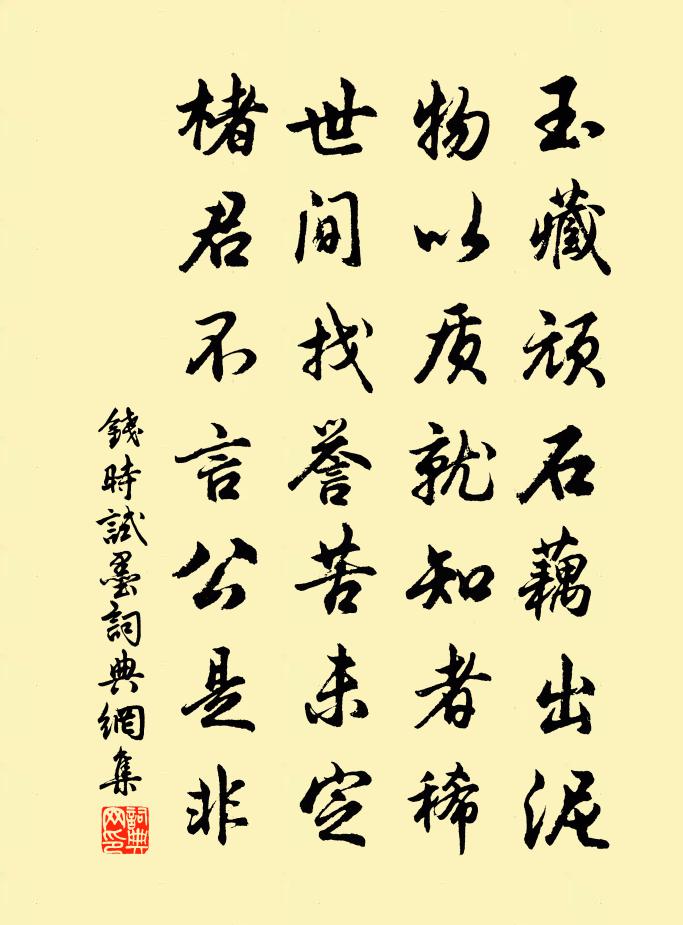 玉藏頑石藕出泥
物以质就知者稀
世间找誉苦未定
楮君不言公是非
錢時試墨詞典網集
詞典网印